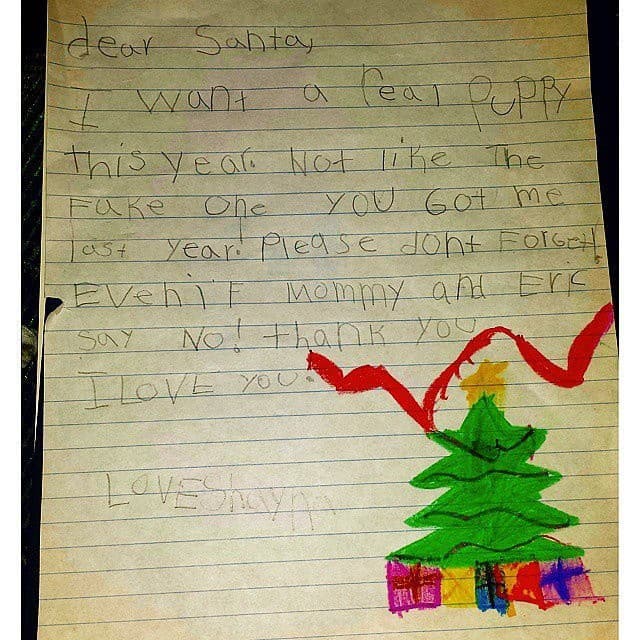 dear Santa,
I want a real puppy
this year. Not like The
Fake One YOU Got me
last year! Please dont FORGEt!
EVEN iF Mommy and Eric
Say NO! thank YOU
I LOVE YOU.
LOVE Shaynn